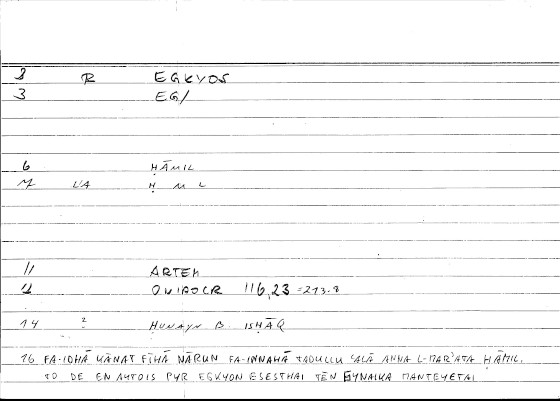 8 R EGKYOS
3 EG/
6 ḤĀMIL
M UA Ḥ M L
11 ARTEM
12 ONIROCR 116,23 =213.8
14 2 ḤUNAYN B. ISḤĀQ
16 FA-IDHĀ KĀNAT FĪHĀ NĀRUN FA-INNAHĀ TADULLU ʿALĀ ANNA L-MARʾATA ḤĀMIL.
TO DE EN AUTOIS PYR EGKYON ESESTHAI TĒN GYNAIKA MANTEYETAI